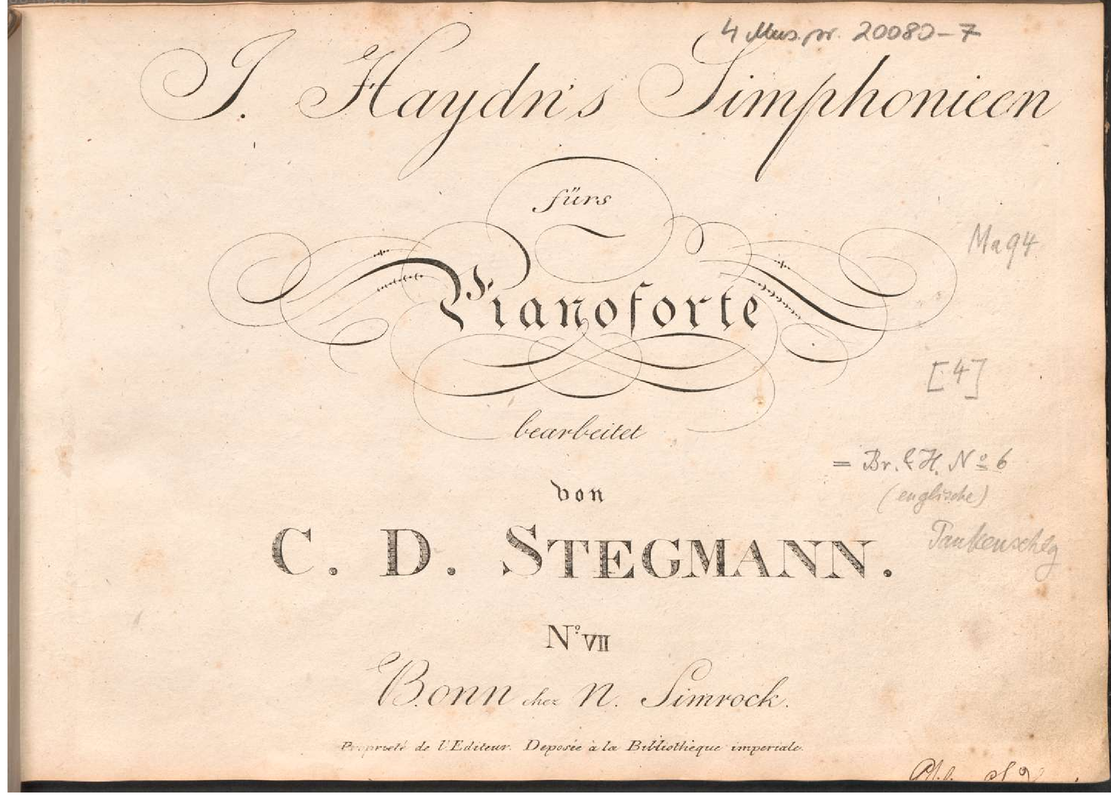 4 Mus.pr. 20080-7
J. Haydn's Simphonieen
fürs
Pianoforte
Ma 94
[4]
bearbeitet
= Br. & H. No 6
(englische)
von
Paukenschlg
C. D. STEGMANN.
No. VII
Bonn chez N. Simrock.
Propriété de l'Editeur. Deposée à la Bibliothèque imperiale.